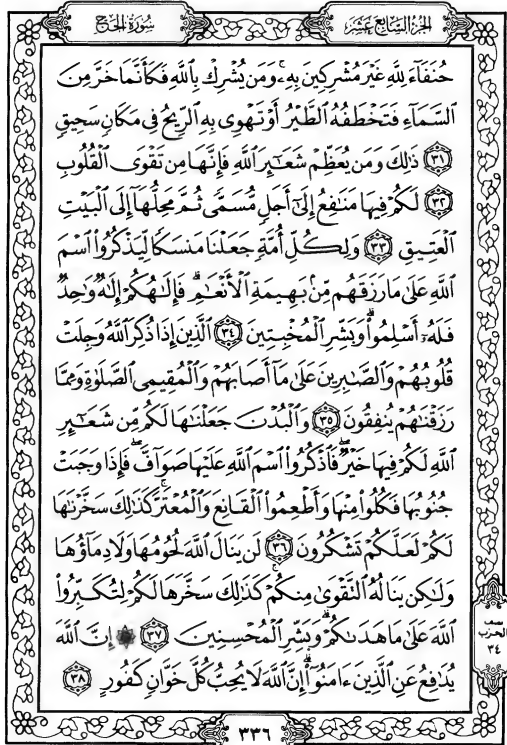 الجزء السابع عشر
سورة الحج
حُنَفَآءَ لِلَّهِ غَيْرَ مُشْرِكِينَ بِهِۦ ۚ وَمَن يُشْرِكْ بِٱللَّهِ فَكَأَنَّمَا خَرَّ مِنَ
ٱلسَّمَآءِ فَتَخْطَفُهُ ٱلطَّيْرُ أَوْ تَهْوِى بِهِ ٱلرِّيحُ فِى مَكَانٍ سَحِيقٍ
﴿٣١﴾ ذَٰلِكَ وَمَن يُعَظِّمْ شَعَـٰٓئِرَ ٱللَّهِ فَإِنَّهَا مِن تَقْوَى ٱلْقُلُوبِ
﴿٣٢﴾ لَكُمْ فِيهَا مَنَـٰفِعُ إِلَىٰٓ أَجَلٍ مُّسَمًّى ثُمَّ مَحِلُّهَآ إِلَى ٱلْبَيْتِ
ٱلْعَتِيقِ ﴿٣٣﴾ وَلِكُلِّ أُمَّةٍ جَعَلْنَا مَنسَكًا لِّيَذْكُرُوا۟ ٱسْمَ
ٱللَّهِ عَلَىٰ مَا رَزَقَهُم مِّنۢ بَهِيمَةِ ٱلْأَنْعَـٰمِ ۗ فَإِلَـٰهُكُمْ إِلَـٰهٌ وَٰحِدٌ
فَلَهُۥٓ أَسْلِمُوا۟ ۗ وَبَشِّرِ ٱلْمُخْبِتِينَ ﴿٣٤﴾ ٱلَّذِينَ إِذَا ذُكِرَ ٱللَّهُ وَجِلَتْ
قُلُوبُهُمْ وَٱلصَّـٰبِرِينَ عَلَىٰ مَآ أَصَابَهُمْ وَٱلْمُقِيمِى ٱلصَّلَوٰةِ وَمِمَّا
رَزَقْنَـٰهُمْ يُنفِقُونَ ﴿٣٥﴾ وَٱلْبُدْنَ جَعَلْنَـٰهَا لَكُم مِّن شَعَـٰٓئِرِ
ٱللَّهِ لَكُمْ فِيهَا خَيْرٌ ۖ فَٱذْكُرُوا۟ ٱسْمَ ٱللَّهِ عَلَيْهَا صَوَآفَّ ۖ فَإِذَا وَجَبَتْ
جُنُوبُهَا فَكُلُوا۟ مِنْهَا وَأَطْعِمُوا۟ ٱلْقَانِعَ وَٱلْمُعْتَرَّ ۚ كَذَٰلِكَ سَخَّرْنَـٰهَا
لَكُمْ لَعَلَّكُمْ تَشْكُرُونَ ﴿٣٦﴾ لَن يَنَالَ ٱللَّهَ لُحُومُهَا وَلَا دِمَآؤُهَا
وَلَـٰكِن يَنَالُهُ ٱلتَّقْوَىٰ مِنكُمْ ۚ كَذَٰلِكَ سَخَّرَهَا لَكُمْ لِتُكَبِّرُوا۟
ٱللَّهَ عَلَىٰ مَا هَدَىٰكُمْ ۗ وَبَشِّرِ ٱلْمُحْسِنِينَ ﴿٣٧﴾ ۞ إِنَّ ٱللَّهَ
يُدَٰفِعُ عَنِ ٱلَّذِينَ ءَامَنُوٓا۟ ۗ إِنَّ ٱللَّهَ لَا يُحِبُّ كُلَّ خَوَّانٍ كَفُورٍ ﴿٣٨﴾
نصف
الحزب
٣٤
٣٣٦